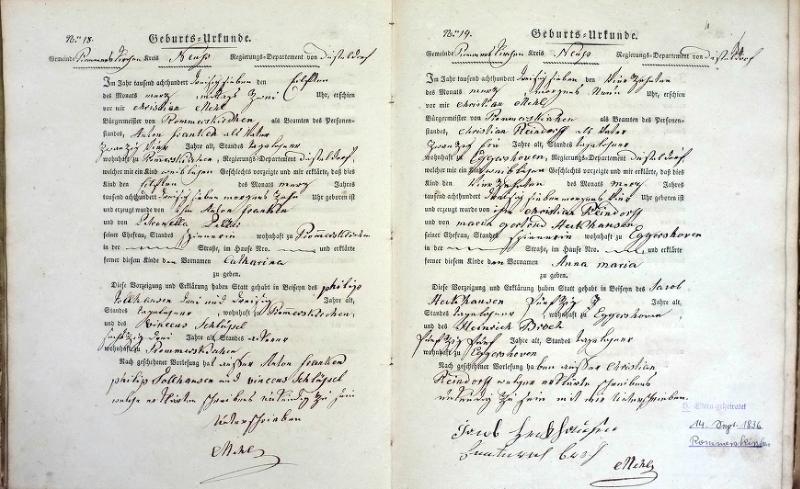 Nro. 18. Geburts-Urkunde.
Gemeinde Rommerskirchen Kreis Neuß Regierungs-Departement von Düsseldorf
Im Jahr tausend achthundert dreisig sieben den Eilften
des Monats merz mittags Zwei Uhr, erschien
vor mir Christian Mehl
Bürgermeister von Rommerskirchen als Beamten des Personen-
standes, Anton Franken als Vater
zwanzig vier Jahre alt, Standes tagelöhner
wohnhaft zu Romerskirchen, Regierungs-Departement Düsseldorf,
welcher mir ein weiblichen Geschlechts vorzeigte und mir erklärte, daß dies
Kind den Eilften des Monats merz Jahres
tausend achthundert dreisig sieben morgens zehn Uhr geboren ist
und erzeugt wurde von ihm Anton Franken
und von Petronella
seiner Ehefrau, Standes Spinnerin wohnhaft zu Rommerskirchen
in der Straße, im Hause Nro. und erklärte
ferner diesem Kinde den Vornamen Catharina
zu geben.
Diese Vorzeigung und Erklärung haben Statt gehabt in Beiseyn des philipp
Folkhausen drei und dreisig Jahre alt,
Standes tagelöhner, wohnhaft zu Rommerskirchen,
und des Vincens Schlüpel
fünfzig drei Jahre alt, Standes
wohnhaft zu Rommerskirchen
Nach geschehener Vorlesung hat außer Anton Franken
philip Folkhausen und Vincens Schlüpel
welche erklärten schreibens unkundig zu sein
unterschrieben
CMehl
Nro. 19. Geburts-Urkunde.
Gemeinde Rommerskirchen Kreis Neuß Regierungs-Departement von Düsseldorf
Im Jahr tausend achthundert dreisig sieben den Vierzehnten
des Monats merz morgens Neun Uhr, erschien
vor mir Christian Mehl
Bürgermeister von Rommerskirchen als Beamten des Personen-
standes, Christian Reindorff als Vater
Jahre alt, Standes tagelöhner
wohnhaft zu Eggershoven, Regierungs-Departement Düsseldorf
welcher mir ein weiblichen Geschlechts vorzeigte und mir erklärte, daß dies
Kind den Vierzehnten des Monats merz Jahres
tausend achthundert dreisig sieben morgens Uhr geboren ist
und erzeugt wurde von ihm Christian Reindorff
und von maria gertrud Heckhausen
seiner Ehefrau, Standes Spinnerin wohnhaft zu Eggershoven
in der Straße, im Hause Nro. und erklärte
ferner diesem Kinde den Vornamen Anna maria
zu geben.
Diese Vorzeigung und Erklärung haben Statt gehabt in Beiseyn des Jacob
Heckhausen fünfzig Jahre alt,
Standes tagelöhner, wohnhaft zu Eggershoven
und des Heinrich Broch
fünfzig fünf Jahre alt, Standes tagelöhner
wohnhaft zu Eggershoven
Nach geschehener Vorlesung haben außer Christian
Reindorff welcher erklärte schreibens
unkundig zu sein mit mir unterschrieben.
Jacob Heckhausen
CMehl
14. Sept. 1836
Rommerskirchen